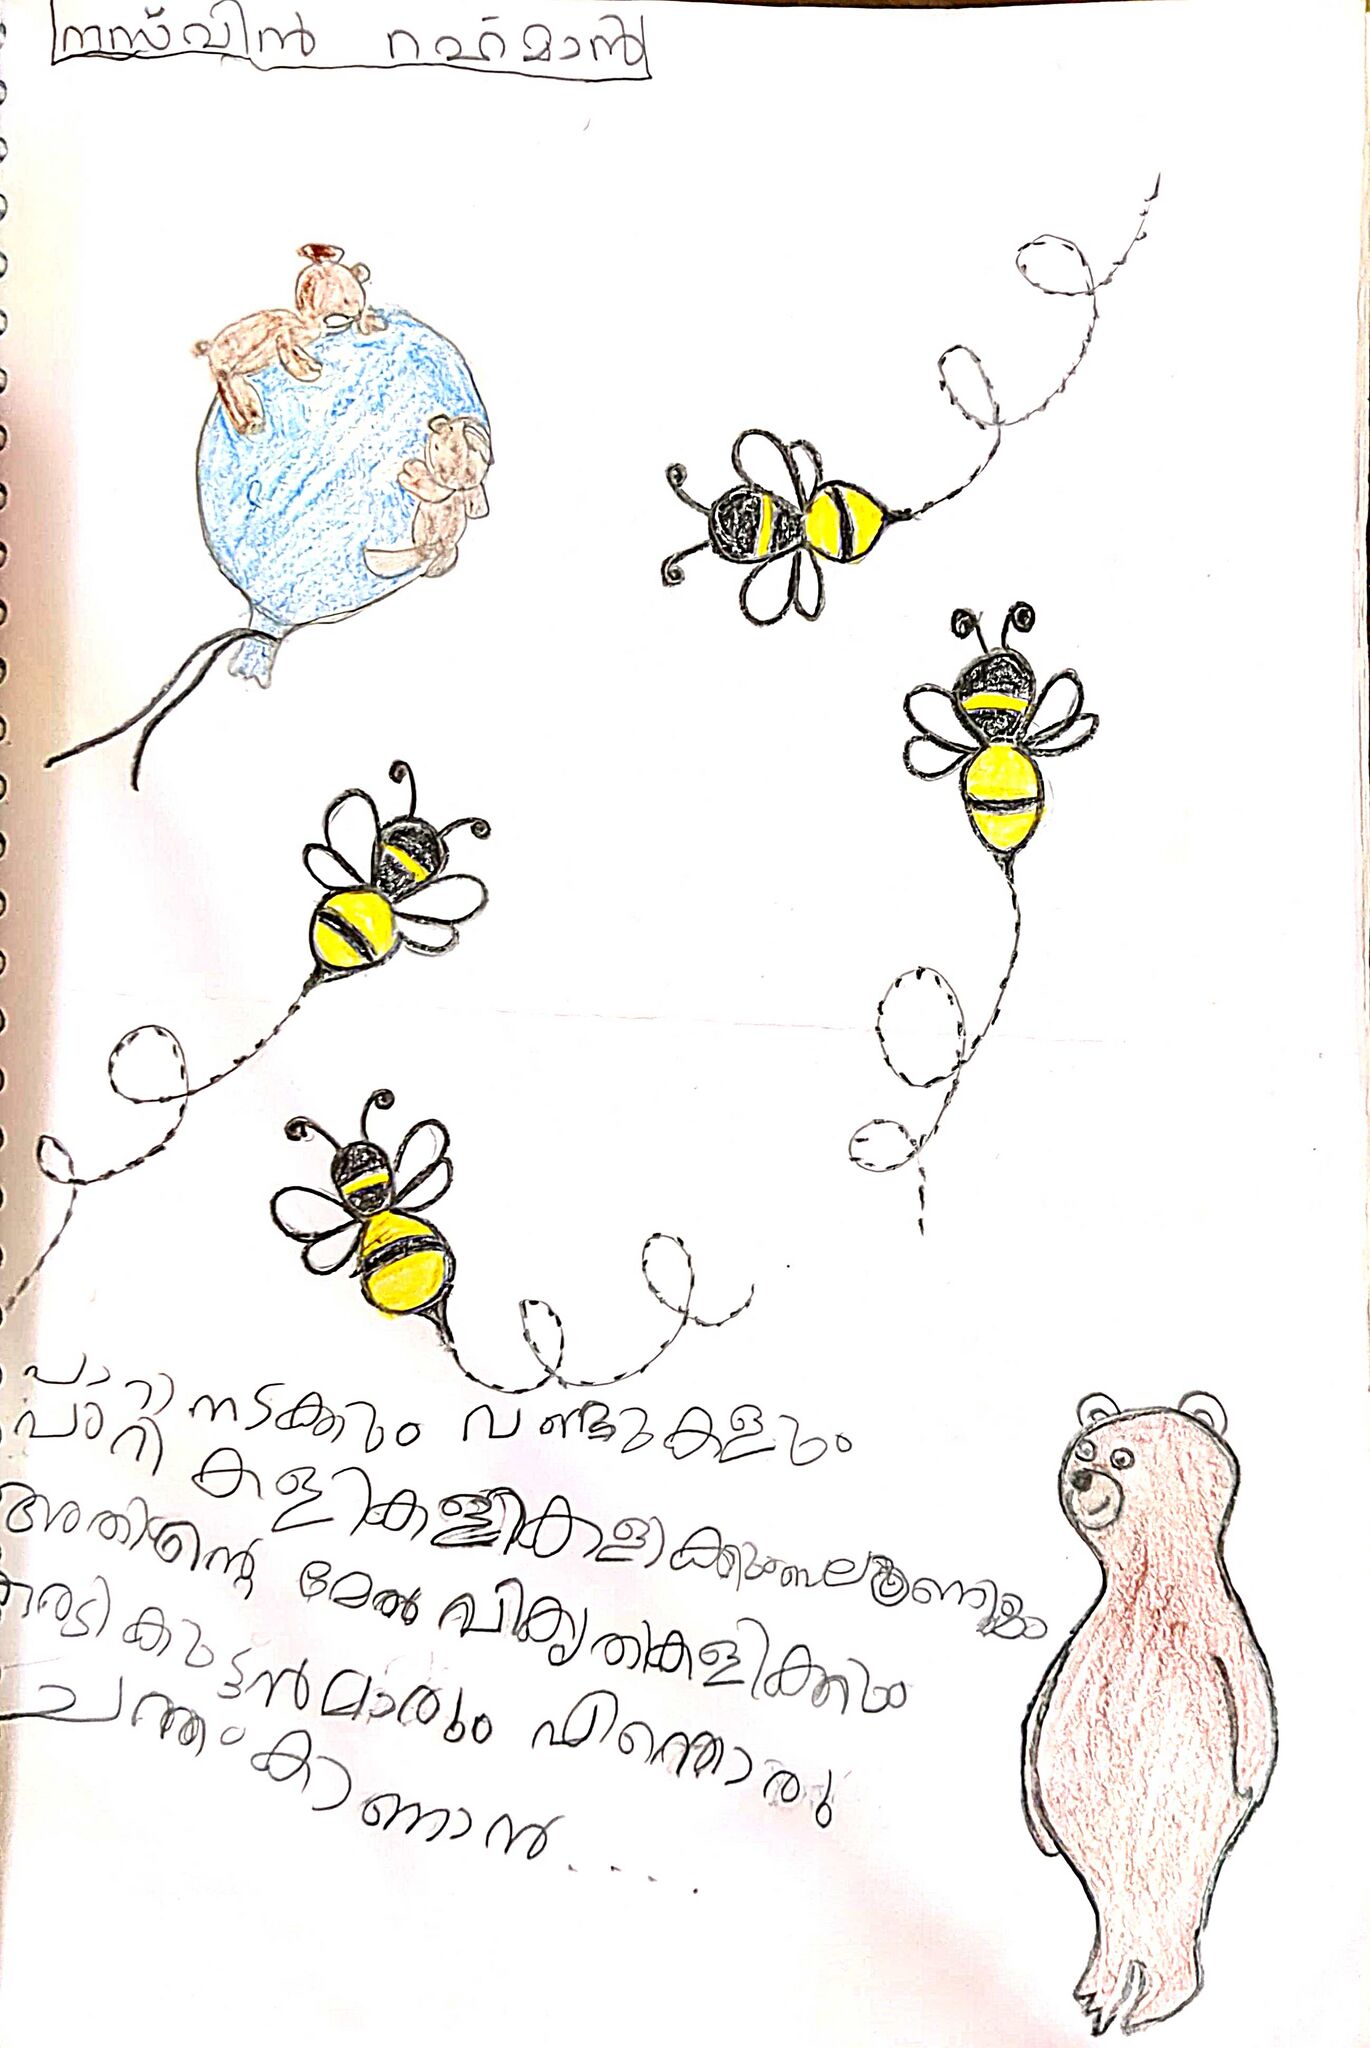 നസ്വിൻ റഹ്മാൻ
പാറി നടക്കും വണ്ടുകളും
പാറി കളികളികളിക്കും ബലൂണും
അതിന്റെ മേൽ വികൃതികളിക്കും
കരടി കുട്ടൻമാരും എന്തൊരു
ചന്തം കാണാൻ.....